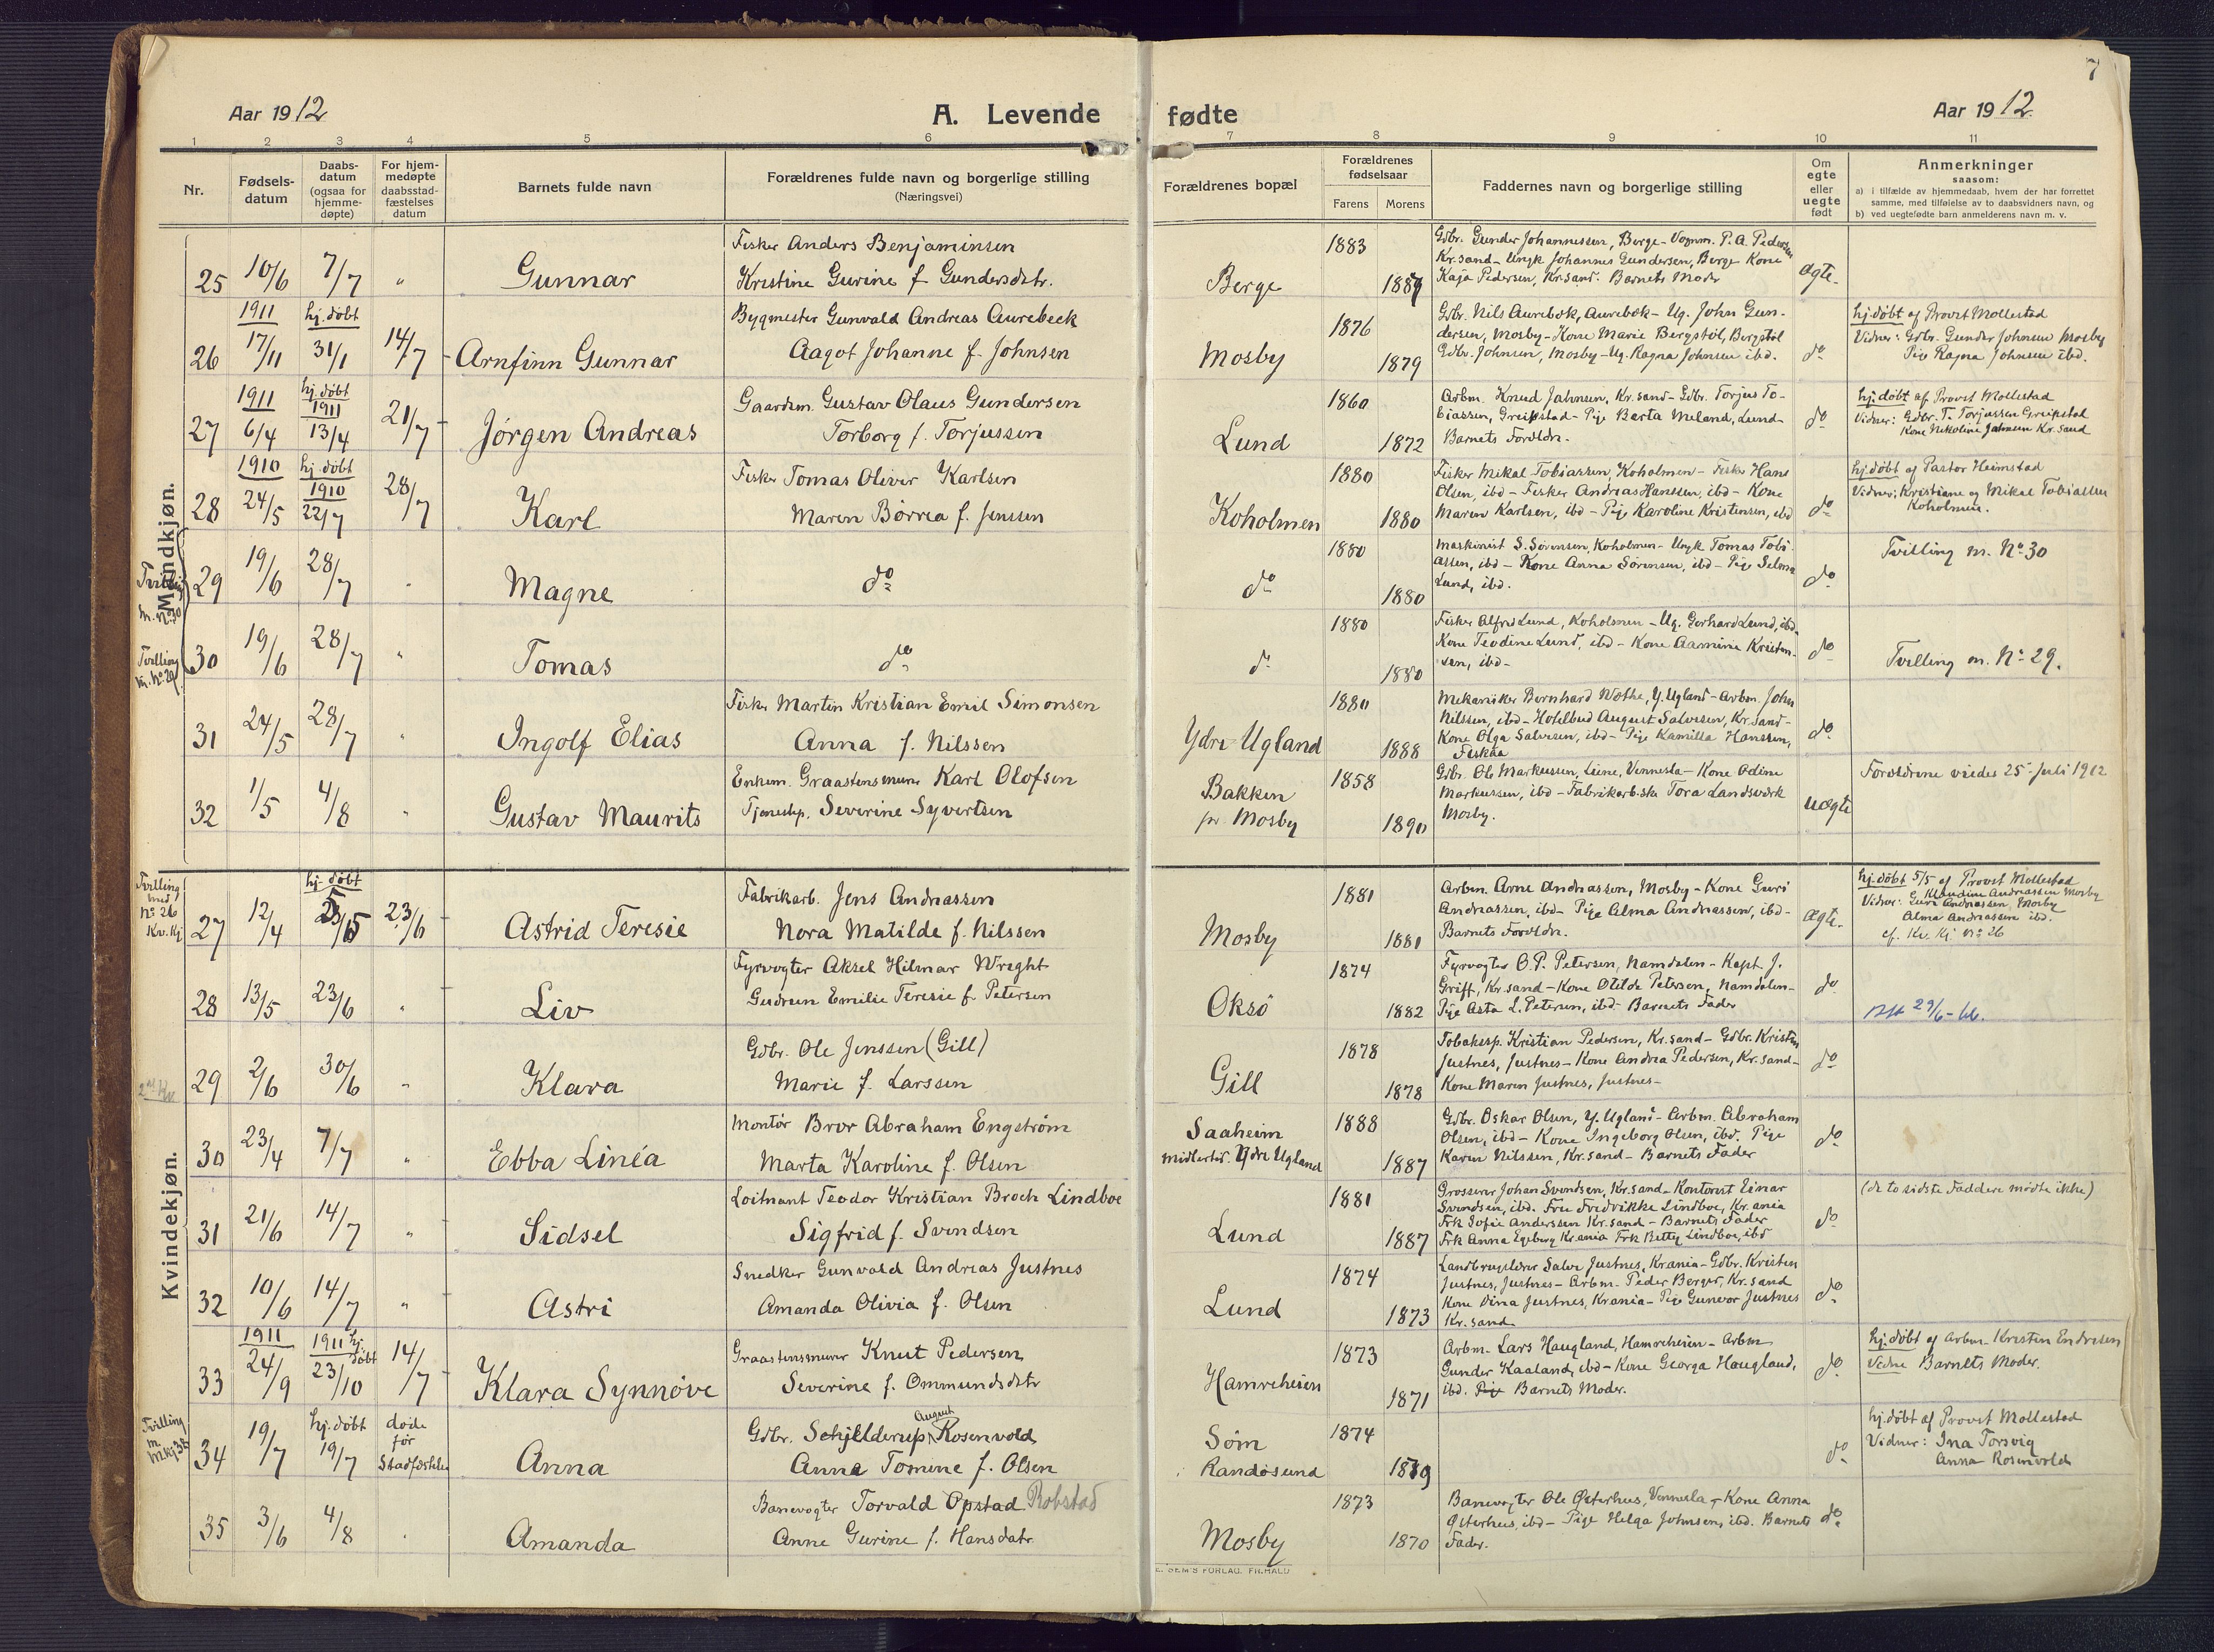 7
Aar 1912
A. Levende fødte
Aar 1912.
1 2 3 4 5 6 7 8 9 10 11
Nr.
Fødsels-
datum
Daabs-
datum
(ogsaa for
hjemme-
døpte)
For hjem-
medøpte
daabsstad-
fæstelses
datum
Barnets fulde navn
Forældrenes fulde navn og borgerlige stilling
(Næringsvei)
Forældrenes bopæl
Forældrenes
fødselsaar
Farens Morens
Faddernes navn og borgerlige stilling
Om
egte
eller
uegte
født
Anmerkninger
saasom:
a) i tilfælde av hjemmedaab, hvem der har forrettet
samme, med tilføielse av to daabsvidners navn, og
b) ved uegtefødte barn anmelderens navn m. v.
Mandkjøn.
25 10/6 7/7 " Gunnar
Fisker Anders Benjaminsen
Kristine Gurine f. Gundersdtr.
Berge 1883 1889
Gdbr. Gunder Johannessen, Berge - Vognm. P. A. Pedersen
Kr.sand - Ungk Johannes Gundersen, Berge Kone
Kaja Pedersen, Kr.sand. Barnets Moder
ægte.
26 1911 17/11 hj. døbt 31/1 14/7 Arnfinn Gunnar
Bygmester Gunvald Andreas Aurebeck
Aagot Johanne f. Johnsen
Mosby 1876 1879
Gdbr. Nils Aurebæk, Aurebæk - Ug. John Gun-
dersen, Mosby - Kone Marie Bergstøl, Bergstøl
Gdbr. Johnsen, Mosby - Ug. Ragna Johnsen ibd.
do
hj. døbt af Provst Mollestad
Vidner: Gdbr. Gunder Johnsen Mosby
Pige Ragna Johnsen ibd.
27 1911 6/4 hj. døbt 1911 13/4 21/7 Jørgen Andreas
Gaardm. Gustav Olaus Gundersen
Torborg f. Torjussen
Lund 1860 1872
Arbm. Knud Jahnsen, Kr.sand - Gdbr. Torjus To-
biassen, Greipstad - Pige Berta Meland, Lund -
Barnets Forældr.
do
hj. døbt af Provst Mollestad
Vidner: Gdbr. T. Torjussen Greipstad
Kone Nikoline Jahnsen Kr.sand
28 1910 24/5 hj. døbt 1910 22/7 28/7 Karl
Fisker Tomas Oliver Karlsen
Maren Børrea f. Jenssen
Koholmen 1880 1880
Fisker Mikal Tobiassen, Koholmen - Fisker Hans
Olsen, ibd - Fisker Andreas Hanssen, ibd - Kone
Maren Karlsen, ibd - Pige Karoline Kristensen, ibd
do
hj. døbt af Pastor Heimstad
Vidner: Kristiane og Mikal Tobiassen
Koholmen.
Tvilling
m. No 30
29 19/6 28/7 " Magne
do
do 1880 1880
Maskinist S. Sørensen, Koholmen - Ungk Tomas Tobi-
assen, ibd - Kone Anna Sørensen, ibd - Pige Selma
Lund, ibd.
do
Tvilling m. No 30
Tvilling
m. No 29
30 19/6 28/7 " Tomas
do
do 1880 1880
Fisker Alfred Lund, Koholmen - Ug. Gerhard Lund, ibd.
Kone Teodine Lund, ibd - Kone Aamine Kristen-
sen, ibd -
do
Tvilling m. No 29.
31 24/5 28/7 " Ingolf Elias
Fisker Martin Kristian Emil Simonsen
Anna f. Nilssen
Ydre Ugland 1880 1888
Mekaniker Bernhard Wøthe, Y. Ugland - Arbm. John
Nilssen, ibd - Hotelbud August Salvesen, Kr.sand -
Kone Olga Salvesen, ibd - Pige Kamilla Hanssen,
Fiskaa
do.
32 1/5 4/8 " Gustav Maurits
Enkem. Graastensmurer Karl Olofsen
Tjenestep. Severine Syvertsen
Bakken
pr. Mosby 1858 1890
Gdbr. Ole Markussen, Liene, Vennesla - Kone Odine
Markussen, ibd - Fabrikarb.ske Tora Landsværk
Mosby.
uægte
Forældrene viedes 25 Juli 1912
Kvindekjøn.
Tvilling
med
No 26
Kv. Kj
27 12/4 hj. døbt 5/5 23/6 Astrid Teresie
Fabrikarb. Jens Andreassen
Nora Matilde f. Nilssen
Mosby 1881 1881
Arbm. Arne Andreassen, Mosby - Kone Guri
Andreassen, ibd - Pige Alma Andreassen, ibd -
Barnets Forældr.
ægte.
hj. døbt 5/5 af Provst Mollestad
Klaudine Andreassen Mosby
Vidner: Guri Andreassen, Mosby
Alma Andreassen ibd.
cf. Kv. Kj. No 26
28 13/5 23/6 " Liv
Fyrvogter Aksel Hilmar Wright
Gudrun Emilie Teresie f. Petersen
Oksø 1874 1882
Fyrvogter O. P. Petersen, Namdalen - Kapt. J.
Griff, Kr.sand - Kone Otilde Petersen, Namdalen -
Pige Asta L. Petersen, ibd - Barnets Fader
do
29/6-66.
29 2/6 30/6 " Klara
Gdbr. Ole Jenssen (Gill)
Marie f. Larssen
Gill 1878 1878
Tobaksp. Kristian Pedersen, Kr.sand - Gdbr. Kristen
Justnes, Justnes - Kone Andrea Pedersen, Kr.sand -
Kone Maren Justnes, Justnes -
do
30 23/4 7/7 " Ebba Linéa
Montør Bror Abraham Engstrøm
Marta Karoline f. Olsen
Saaheim
midlertid. Ydre Ugland 1888 1887
Gdbr. Oskar Olsen, Y. Ugland - Arbm. Abraham
Olsen, ibd - Kone Ingeborg Olsen, ibd. Pige
Karen Nilssen, Kr.sand - Barnets Fader
do
31 21/6 14/7 " Sidsel
Loitnant Teodor Kristian Broch Lindboe
Sigfrid f. Svendsen
Lund 1881 1887
Grosserer Johan Svendsen, Kr.sand - Kontorist Einar
Svendsen, ibd. Frue Fredrikke Lindboe, Kr.ania
Frk Sofie Anderssen Kr.sand - Barnets Fader
Frk Anna Egeberg Kr.ania Frk Betty Lindboe, ibd
do
(de to sidste Faddere mødte ikke)
32 10/6 14/7 " Astri
Snedker Gunvald Andreas Justnes
Amanda Olivia f. Olsen
Lund 1874 1873
Landbrugslærer Salve Justnes, Krania - Gdbr. Kristen
Justnes, Justnes - Arbm. Peder Berger, Kr.sand
Kone Dina Justnes, Krania - Pige Gunvor Justnes
Kr.sand
do
33 1911 24/9 1911 hj. døbt 23/10 14/7 Klara Synnøve
Graastensmurer Knut Pedersen
Severine f. Ommundsdtr
Hamreheien 1873 1871
Arbm. Lars Haugland, Hamreheien - Arbm
Gunder Kaaland, ibd - Kone Georga Haugland,
ibd. Pige Barnets Moder.
do
hj. døbt af Arbm. Kristen Endresen
Vidne Barnets Moder.
Tvilling
m.
34 19/7 hj. døbt 19/7 døde
før
Stadfæstelse
Anna
Gdbr. Schjelderup August Rosenvold
Anna Tomine f. Olsen
Søm
Randøsund 1874 1879
do
hj. døbt af Provst Mollestad
Vidner: Ina Torsvig
Anna Rosenvold
35 3/6 4/8 " Amanda
Banevogter Torvald Opstad Robstad
Anne Gurine f. Hansdatr
Mosby 1873 1870
Banevogter Ole Østerhus, Vennesla - Kone Anna
Østerhus, ibd - Pige Helga Johnsen, ibd. Barnets
Fader.
do
E. SEM'S FORLAG. FR.HALD